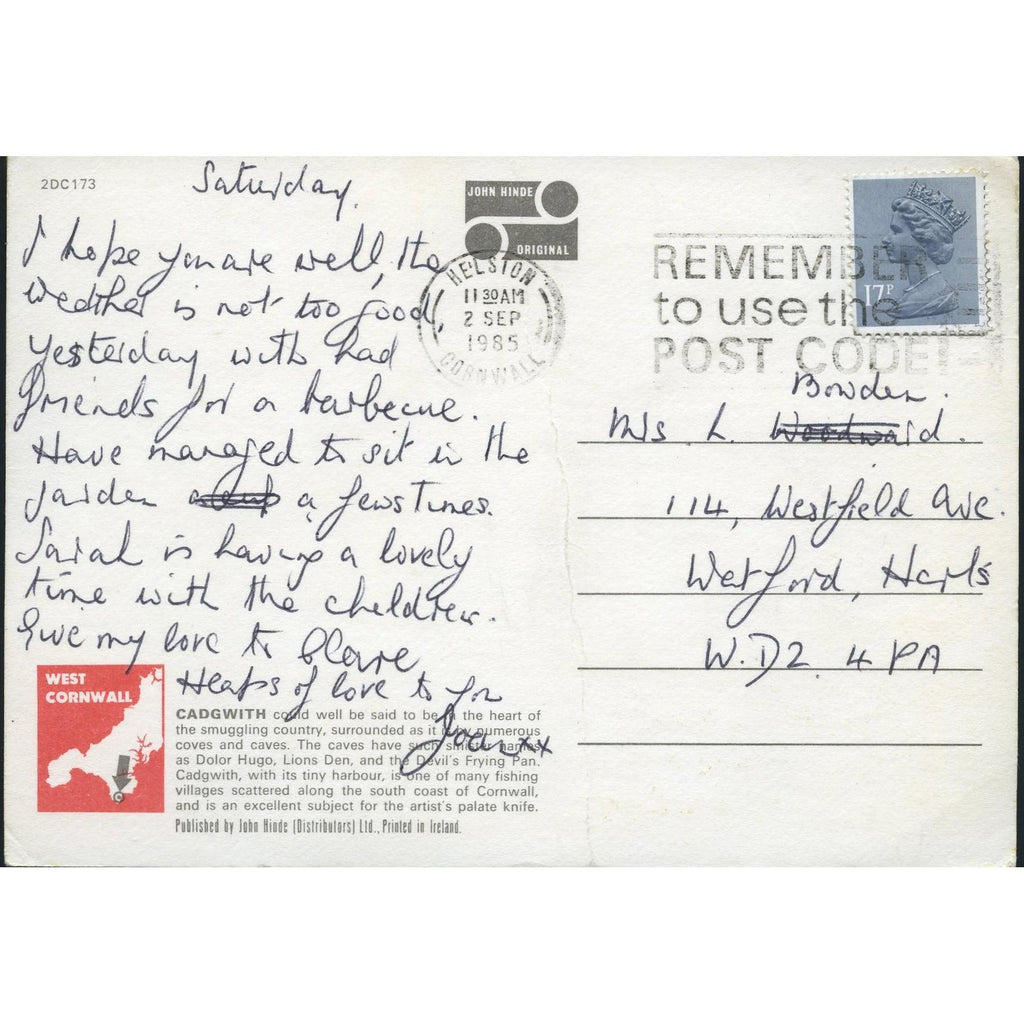 2DC173
Saturday.
I hope you are well, the
weather is not too good,
yesterday with had
friends for a barbecue.
Have managed to sit in the
garden a few times.
Sarah is having a lovely
time with the children.
Give my love to Clare
Heaps of love to you
Joan xx
WEST
CORNWALL
CADGWITH could well be said to be in the heart of
the smuggling country, surrounded as it is by numerous
coves and caves. The caves have such sinister names
as Dolor Hugo, Lions Den, and the Devil's Frying Pan.
Cadgwith, with its tiny harbour, is one of many fishing
villages scattered along the south coast of Cornwall,
and is an excellent subject for the artist's palate knife.
Published by John Hinde (Distributors) Ltd., Printed in Ireland.
JOHN HINDE
ORIGINAL
HELSTON
11 30 AM
2 SEP
1985
CORNWALL
REMEMBER
to use the
POST CODE!
17P
Bowden.
Mrs. L. Woodward.
114, Westfield Ave.
Watford, Herts
W.D2 4 PA